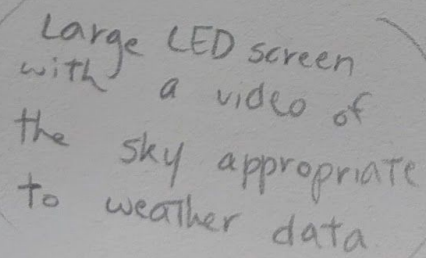 Large LED screen
with a video of
the sky appropriate
to weather data